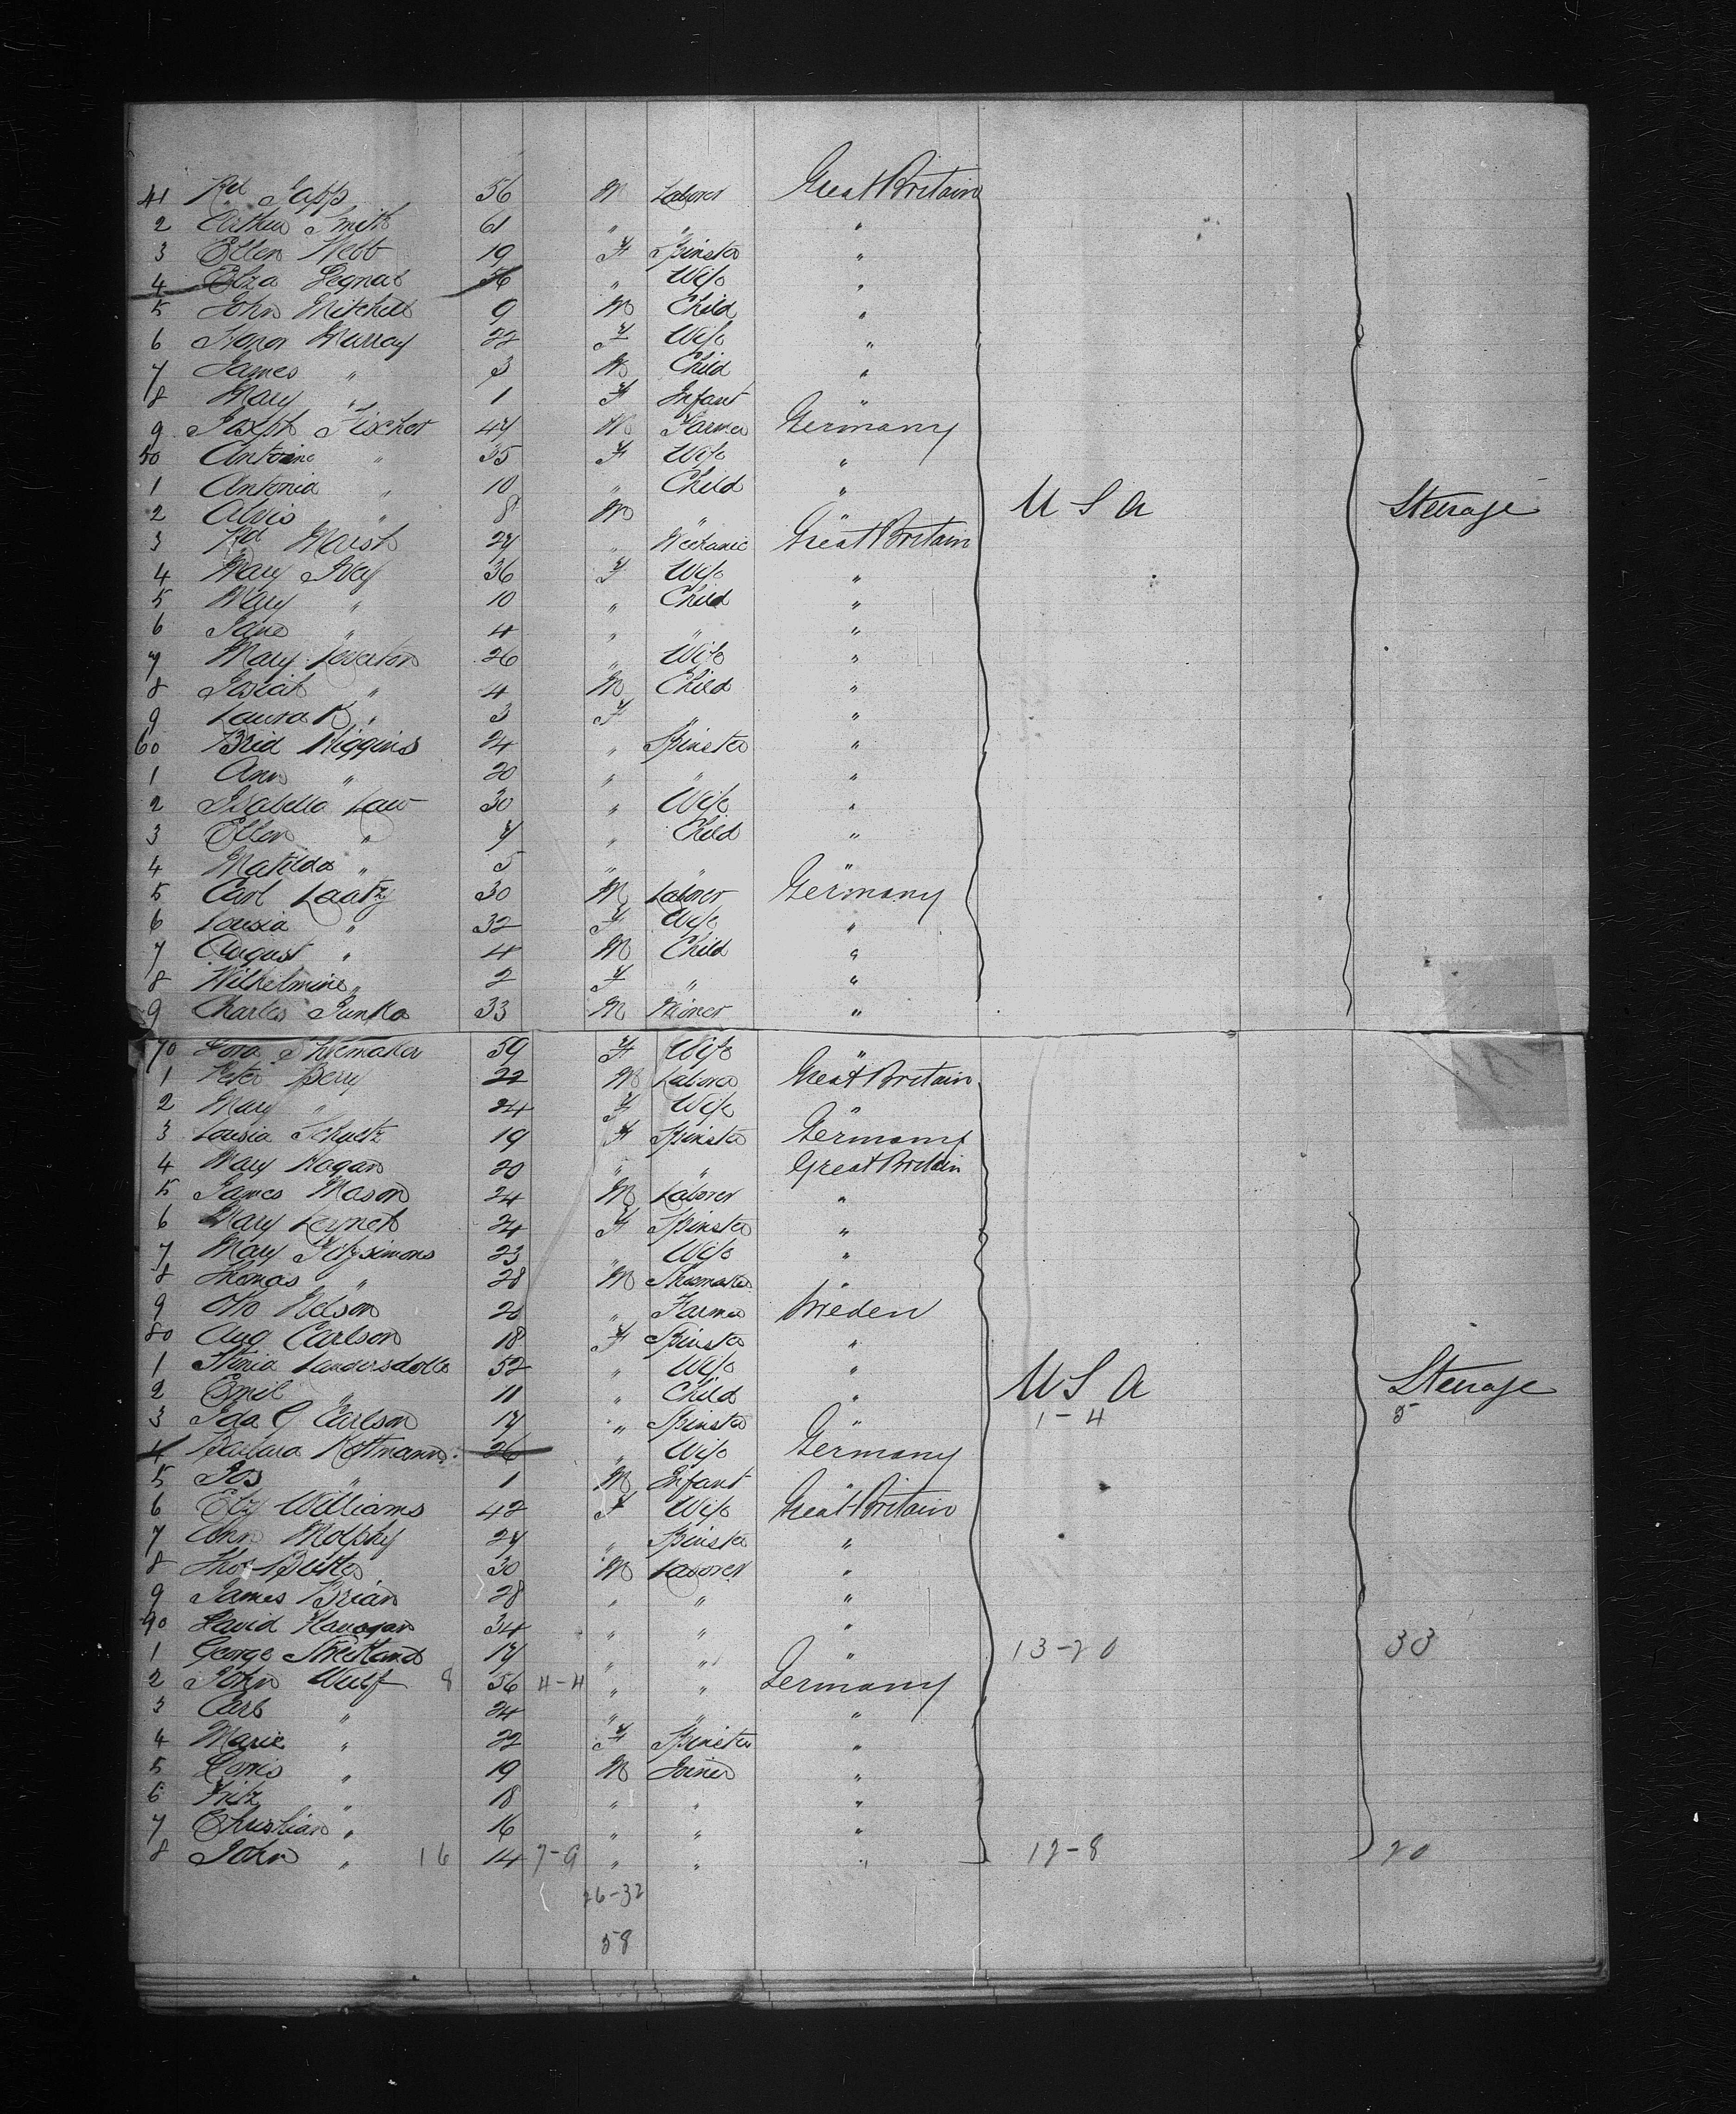 41 Rd Japp 56 M Laborer Great Britain
2 Arthur Smith 61 " " "
3 Ellen Webb 19 F Spinster "
4 Eliza Legnas 56 " Wife "
5 John Mitchell 9 M Child "
6 Honor Murray 22 F Wife "
7 James " 3 M Child "
8 Mary " 1 F Infant "
9 Joseph Fischer 47 M Farmer Germany
50 Antoine " 35 F Wife "
1 Antonia " 10 " Child "
2 Alois " 8 M " " U S A Steerage
3 Rd Marsh 27 " Mechanic Great Britain
4 Mary Ivey 36 F Wife "
5 Mary " 10 " Child "
6 Jane " 4 " " "
7 Mary Leverton 26 " Wife "
8 Josiah " 4 M Child "
9 Laura K " 3 F " "
60 Brid Higgins 24 " Spinster "
1 Ann " 20 " " "
2 Isabella Law 30 " Wife "
3 Ellen " 7 " Child "
4 Matilda " 5 " " "
5 Carl Laatz 30 M Laborer Germany
6 Louisa " 32 F Wife "
7 August " 4 M Child "
8 Wilhelmine " 2 F " "
9 Charles Junka 33 M Miner "
70 Dora Shoemaker 59 F Wife "
1 Peter Berry 22 M Laborer Great Britain
2 Mary " 24 F Wife "
3 Louisa Schultz 19 F Spinster Germany
4 Mary Hogan 20 " " Great Britain
5 James Mason 24 M Laborer "
6 Mary Leynch 24 F Spinster "
7 Mary Fitzsimons 23 " Wife "
8 Thomas " 28 M Shoemaker "
9 Otto Nelson 20 " Farmer Sweden
80 Aug Carlson 18 F Spinster "
1 Stinia 52 " Wife "
2 Emil " 11 " Child " U S A Steerage
3 Ida C Carlson 17 " Spinster " 1-4 5
4 Barbara Kottmann 26 " Wife Germany
5 Jos " 1 M Infant "
6 Eliz Williams 42 F Wife Great Britain
7 Ann Molphy 27 " Spinster "
8 Thos Butler 30 M Laborer "
9 James Brian 28 " " "
90 David Hanagan 34 " " "
1 George Strickland 17 " " " 13-20 33
2 John Wulf 8 56 4-4 " " Germany
3 Carl " 24 " " "
4 Marie " 22 F Spinster "
5 " 19 M Joiner "
6 Fritz " 18 " " "
7 Christian " 16 " " "
8 John " 16 14 7-9 " " " 12-8 20
26-32
58